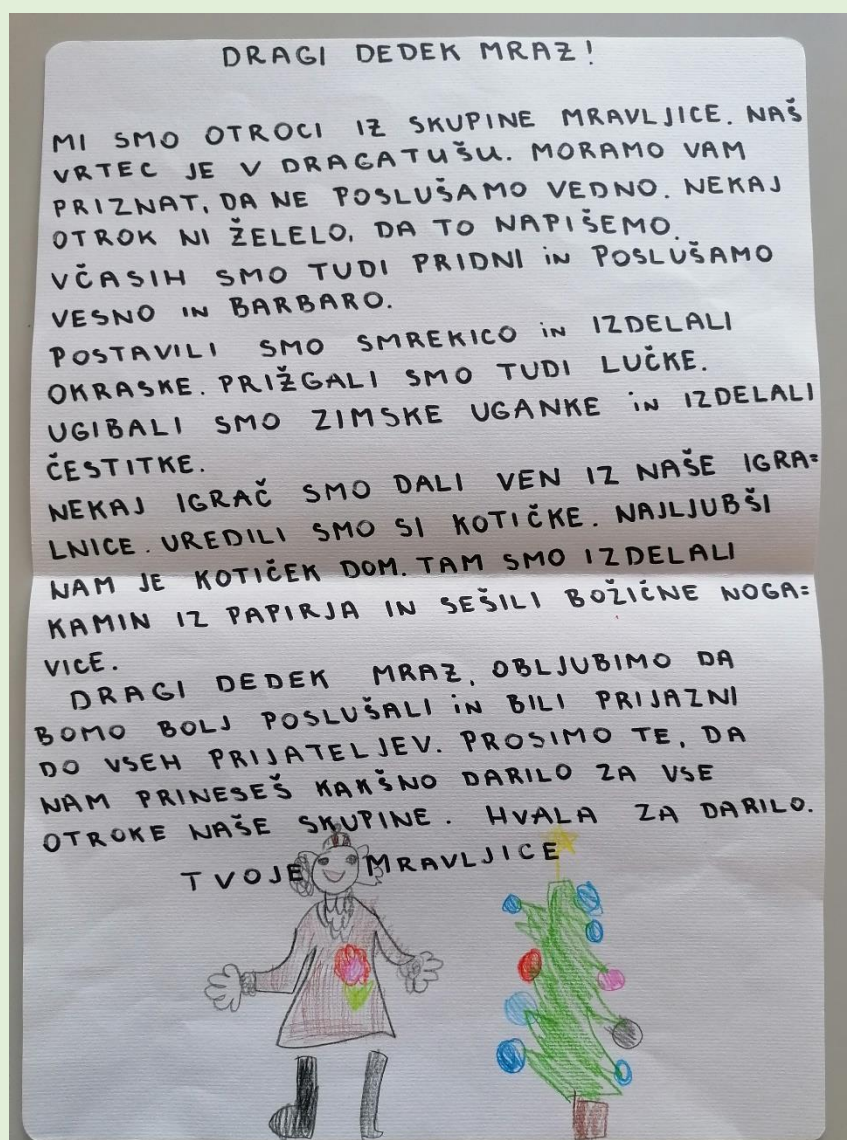 DRAGI DEDEK MRAZ!
MI SMO OTROCI IZ SKUPINE MRAVLJICE. NAŠ
VRTEC JE V DRAGATUŠU. MORAMO VAM
PRIZNAT, DA NE POSLUŠAMO VEDNO. NEKAJ
OTROK NI ŽELELO, DA TO NAPIŠEMO.
VČASIH SMO TUDI PRIDNI iN POSLUŠAMO
VESNO IN BARBARO.
POSTAVILI SMO SMREKICO iN IZDELALI
OKRASKE. PRIŽGALI SMO TUDI LUČKE.
UGIBALI SMO ZIMSKE UGANKE iN IZDELALI
ČESTITKE.
NEKAJ IGRAČ SMO DALI VEN IZ NAŠE IGRA=
LNICE. UREDILI SMO SI KOTIČKE. NAJLJUBŠI
NAM JE KOTIČEK DOM. TAM SMO IZDELALI
KAMIN IZ PAPIRJA IN SEŠILI BOŽIČNE NOGA=
VICE.
DRAGI DEDEK MRAZ, OBLJUBIMO DA
BOMO BOLJ POSLUŠALI iN BILI PRIJAZNI
DO VSEH PRIJATELJEV. PROSIMO TE, DA
NAM PRINESEŠ KAKŠNO DARILO ZA VSE
OTROKE NAŠE SKUPINE. HVALA ZA DARILO.
TVOJE MRAVLJICE